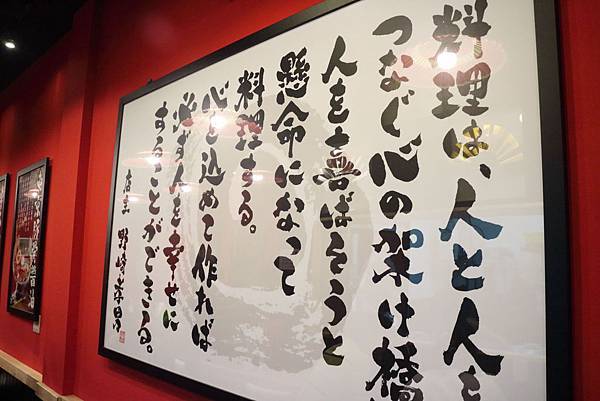 料理は、人と人を
つなぐ心の架け橋
人を喜ばそうと
懸命になって
料理する。
心を込めて作れば
必ず人を幸せに
することができる。
店主 野崎